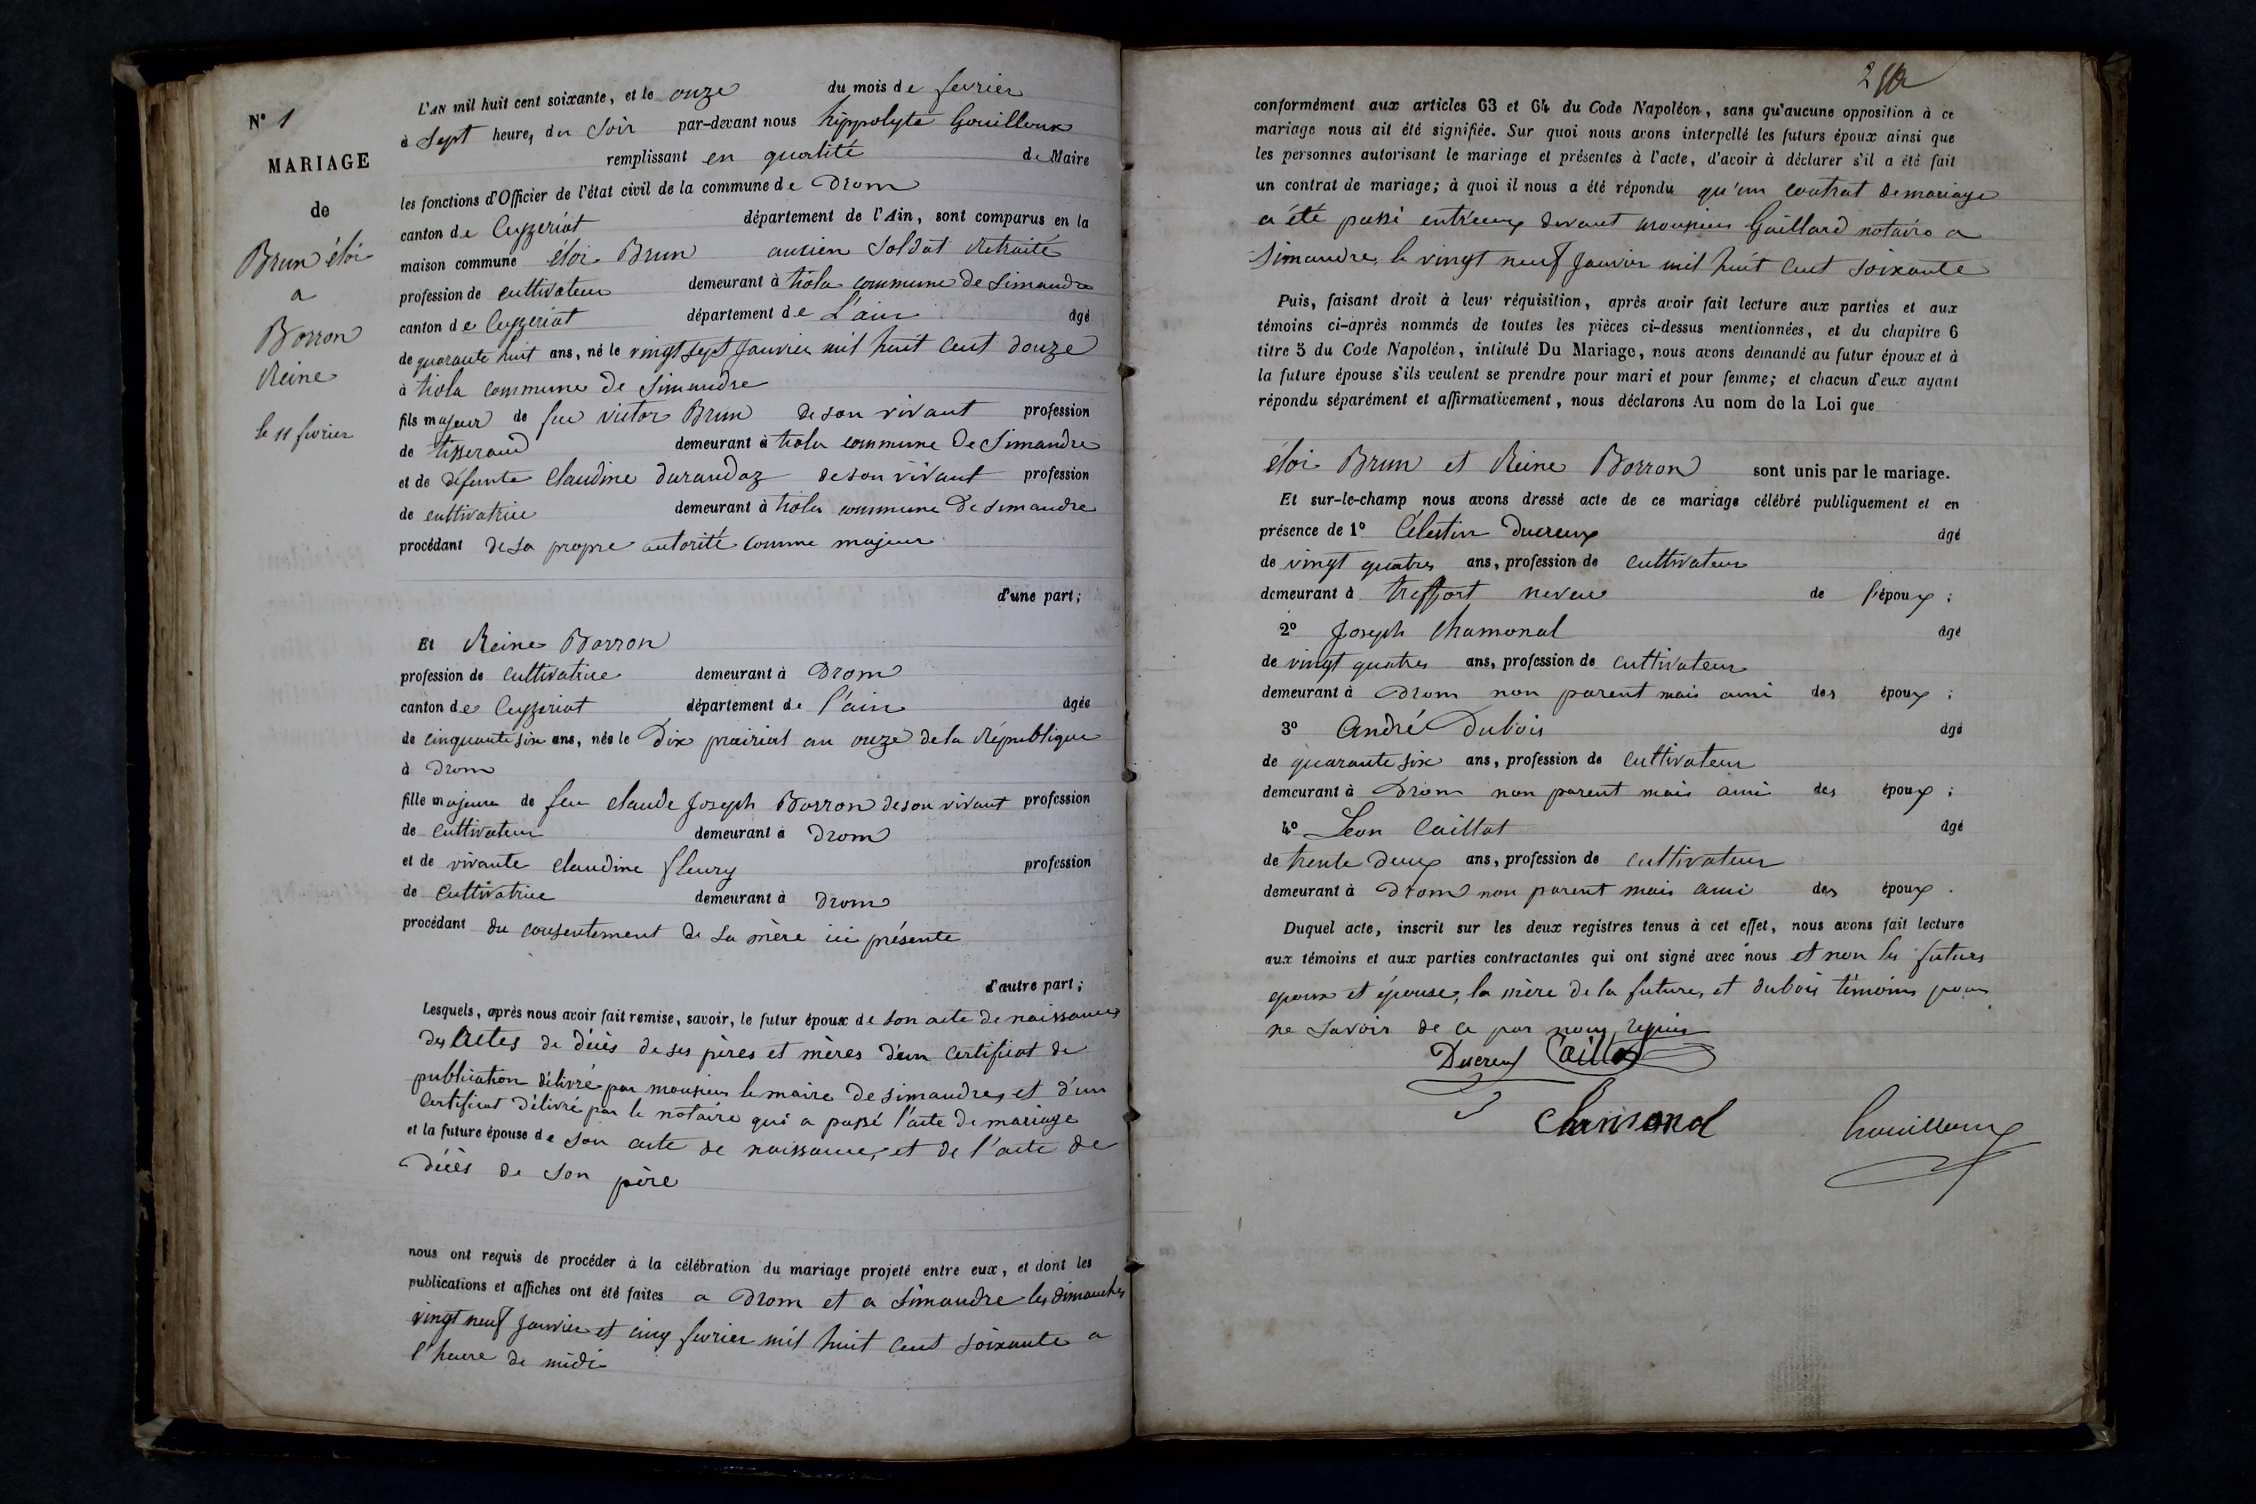 N° 1
MARIAGE
de
Brun éloi
a
Borron
Reine
le 11 fevrier
L'AN mil huit cent soixante, et le onze du mois de fevrier
à sept heures du soir par-devant nous hippolyte Gouilloux
remplissant en qualité de Maire
les fonctions d'Officier de l'état civil de la commune de Drom
canton de Ceyzeriat département de l'Ain, sont comparus en la
maison commune éloi Brun ancien soldat Retraité
profession de cultivateur demeurant à tiola commune de Simandre
canton de Ceyzeriat département de L'ain âgé
de quarante huit ans, né le vingt sept Janvier mil huit cent douze
à tiola commune de Simandre
fils majeur de feu victor Brun de son vivant profession
de tisserand demeurant à tiola commune de Simandre
et de défunte Claudine durandaz de son vivant profession
de cultivatrice demeurant à tiola commune de Simandre
procédant de sa propre autorité comme majeur
d'une part;
Et Reine Borron
profession de cultivatrice demeurant à Drom
canton de Ceyzeriat département de l'ain âgée
de cinquante six ans, née le Dix prairial an onze de la République
à Drom
fille majeure de feu claude Joseph Borron de son vivant profession
de cultivateur demeurant à Drom
et de vivante claudine fleury profession
de cultivatrice demeurant à Drom
procédant du consentement de sa mère ici présente
d'autre part;
Lesquels, après nous avoir fait remise, savoir, le futur époux de son acte de naissance
des actes de décès de ses pères et mères d'un certificat de
publication délivré par monsieur le maire de simandre, et d'un
certificat délivré par le notaire qui a passé l'acte de mariage
et la future épouse de son acte de naissance, et de l'acte de
décès de son père
nous ont requis de procéder à la célébration du mariage projeté entre eux, et dont les
publications et affiches ont été faites a Drom et a Simandre les dimanches
vingt neuf janvier et cinq fevrier mil huit cent soixante a
l'heure de midi
conformément aux articles 63 et 64 du Code Napoléon, sans qu'aucune opposition à ce
mariage nous ait été signifiée. Sur quoi nous avons interpellé les futurs époux ainsi que
les personnes autorisant le mariage et présentes à l'acte, d'avoir à déclarer s'il a été fait
un contrat de mariage; à quoi il nous a été répondu qu'un contrat de mariage
a été passé entr'eux devant monsieur Gaillard notaire a
Simandre, le vingt neuf Janvier mil huit cent soixante
Puis, faisant droit à leur réquisition, après avoir fait lecture aux parties et aux
témoins ci-après nommés de toutes les pièces ci-dessus mentionnées, et du chapitre 6
titre 5 du Code Napoléon, intitulé Du Mariage, nous avons demandé au futur époux et à
la future épouse s'ils veulent se prendre pour mari et pour femme; et chacun d'eux ayant
répondu séparément et affirmativement, nous déclarons Au nom de la Loi que
éloi Brun et Reine Borron sont unis par le mariage.
Et sur-le-champ nous avons dressé acte de ce mariage célébré publiquement et en
présence de 1° Célestin Ducreux âgé
de vingt quatres ans, profession de cultivateur
demeurant à treffort neveu de l'époux;
2° Joseph Chamonal âgé
de vingt quatres ans, profession de cultivateur
demeurant à Drom non parent mais ami des époux;
3° André Dubois âgé
de quarante six ans, profession de cultivateur
demeurant à Drom non parent mais ami des époux;
4° Leon Caillat âgé
de trente deux ans, profession de cultivateur
demeurant à Drom non parent mais ami des époux.
Duquel acte, inscrit sur les deux registres tenus à cet effet, nous avons fait lecture
aux témoins et aux parties contractantes qui ont signé avec nous et non les futurs
epoux et épouse, la mère de la future, et dubois témoins pour
ne savoir de ce par nous requis
Ducreux Caillat
Chamonal Gouilloux